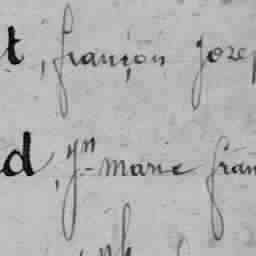 t, françois joze
d, jn-marie fran